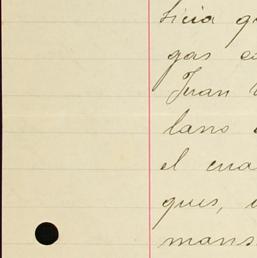 ticia q
gas e
Juan
lano
el cua
ques,
mans